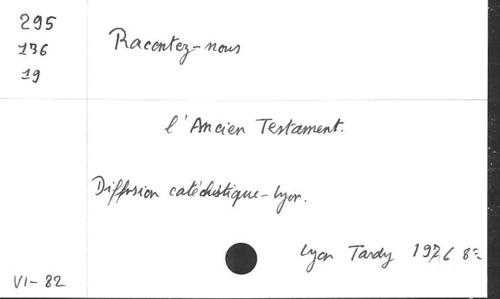 295
136
19
Racontez-nous
l'Ancien Testament.
Diffusion catéchistique-Lyon.
Lyon Tardy 1976 8º
VI-82